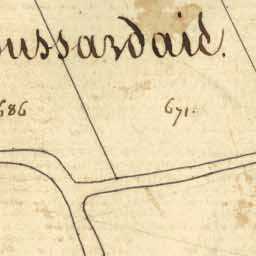 oussardaie.
686
671.